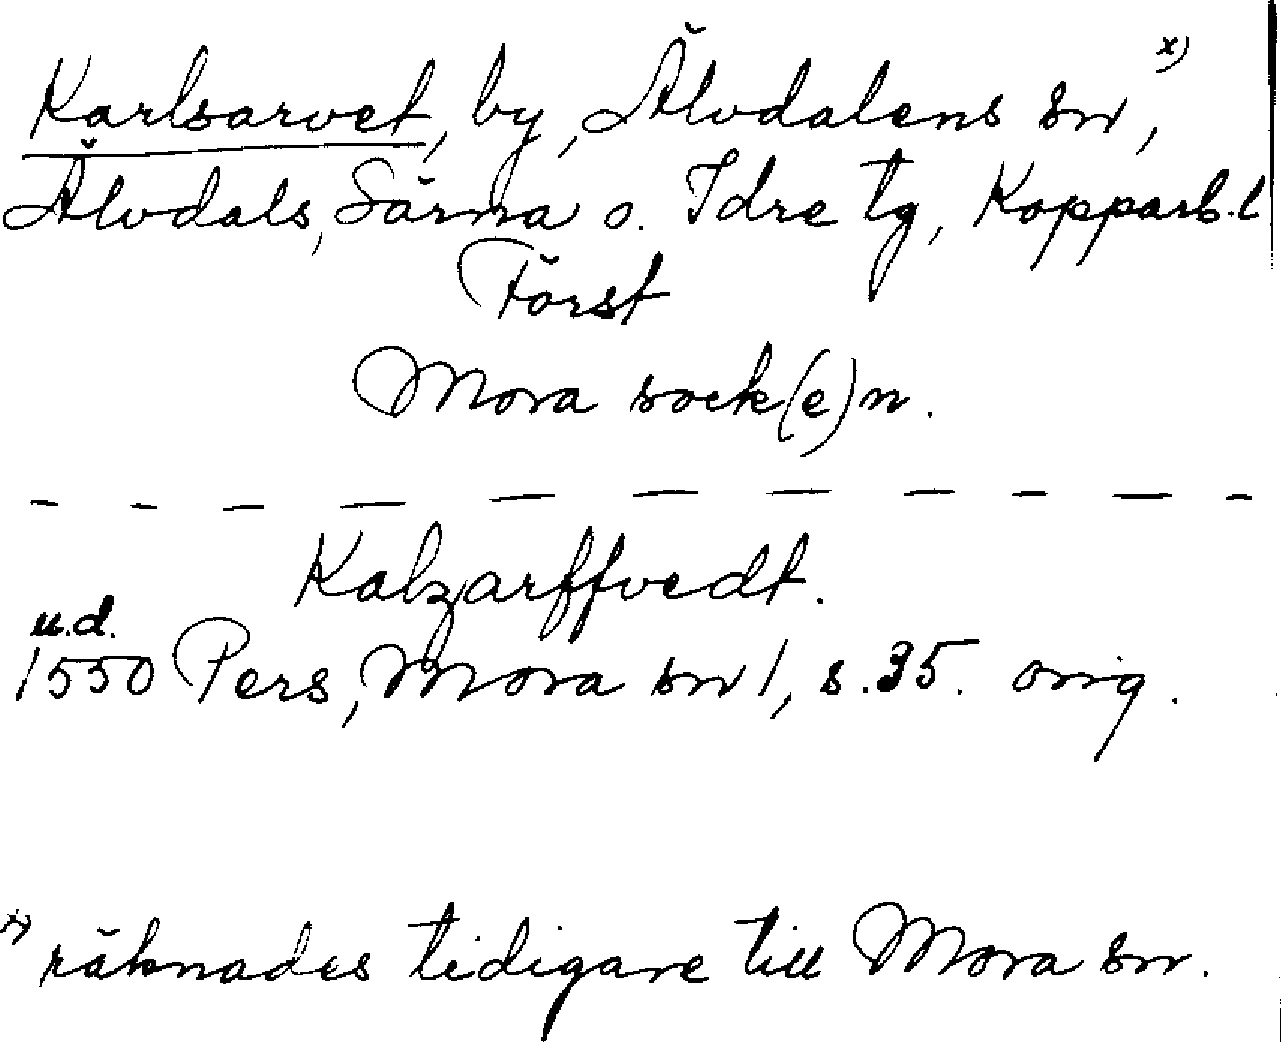 Karlsarvet, by, Älvdalens sn x),
Älvdals, Särna o. Idre tg, Kopparb. l
Först
Mora sock(e)n.
Kalzarffvedt.
u.d.
1550 Pers, Mora sn 1, s. 35. orig.
x) räknades tidigare till Mora sn.